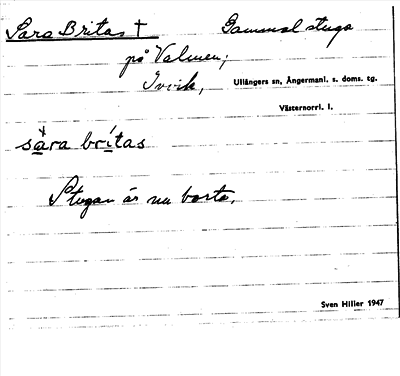 Sara Britas † Gammal stuga
på Valmen,
Invik, Ullångers sn, Ångermanl. s. doms. tg.
Västernorrl. l.
sàra brítas
Stugan är nu borta.
Sven Hiller 1947